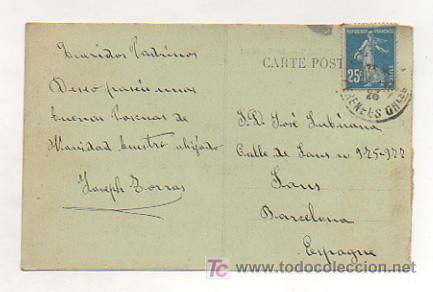 Queridos Padrinos
Deseo paseis unas
buenas Pascuas de
Navidad vuestro ahijado
Joseph Torras
CARTE POST
REPUBLIQUE FRANÇAISE
25c
S.D. José Subirana
Calle de Sans nº 975-977
Sans
Barcelona
Espagne
TC
www.todocoleccion.net